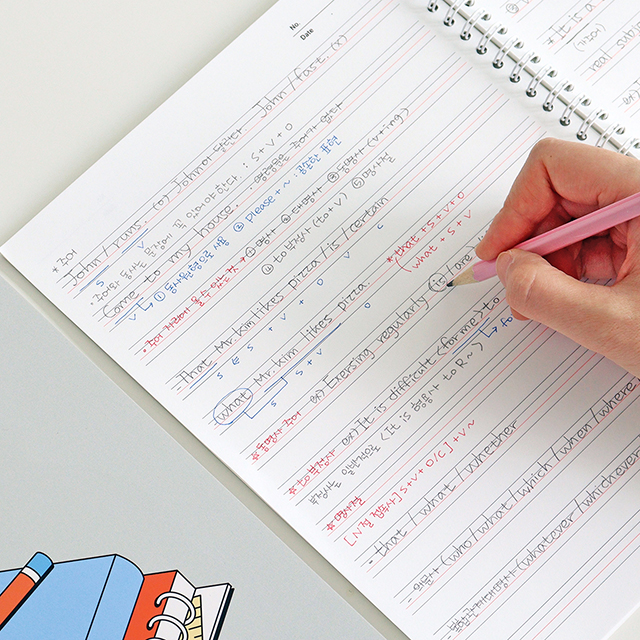 No.
Date
* 주어
John / runs. (o) John이 달린다 John / fast. (x)
S V
· 주어와 동사는 문장에 꼭 있어야한다. : S + V + O
Come to my house. · 명령문은 주어가 없다
V ↳ ① 동사원형으로 시작 ② please + ~ : 공손한 표현
· 주어 자리에 올 수 있는 것 → ① 명사 ② 대명사 ③ 동명사 (v+ing)
④ to 부정사 (to+V) ⑤ 명사절
That Mr.Kim likes pizza / is / certain
S V O V C
* that + S + V + O
( what + S + V
what Mr.Kim likes pizza.
S S + V O
* 동명사 주어 ex) Exersing regularly (is) / are /
* to부정사 ex) It is difficult < for me > to
부정사는 일반적으로 < It is 형용사 to R ~ )
* 명사절
[ N절 접속사 ] S + V + O / C ] + V ~
· that / what / whether
· 의문사 (who / what / which / when / where
· 복합관계대명사 (whatever / whichever
* It is a
(가주어)
real subj